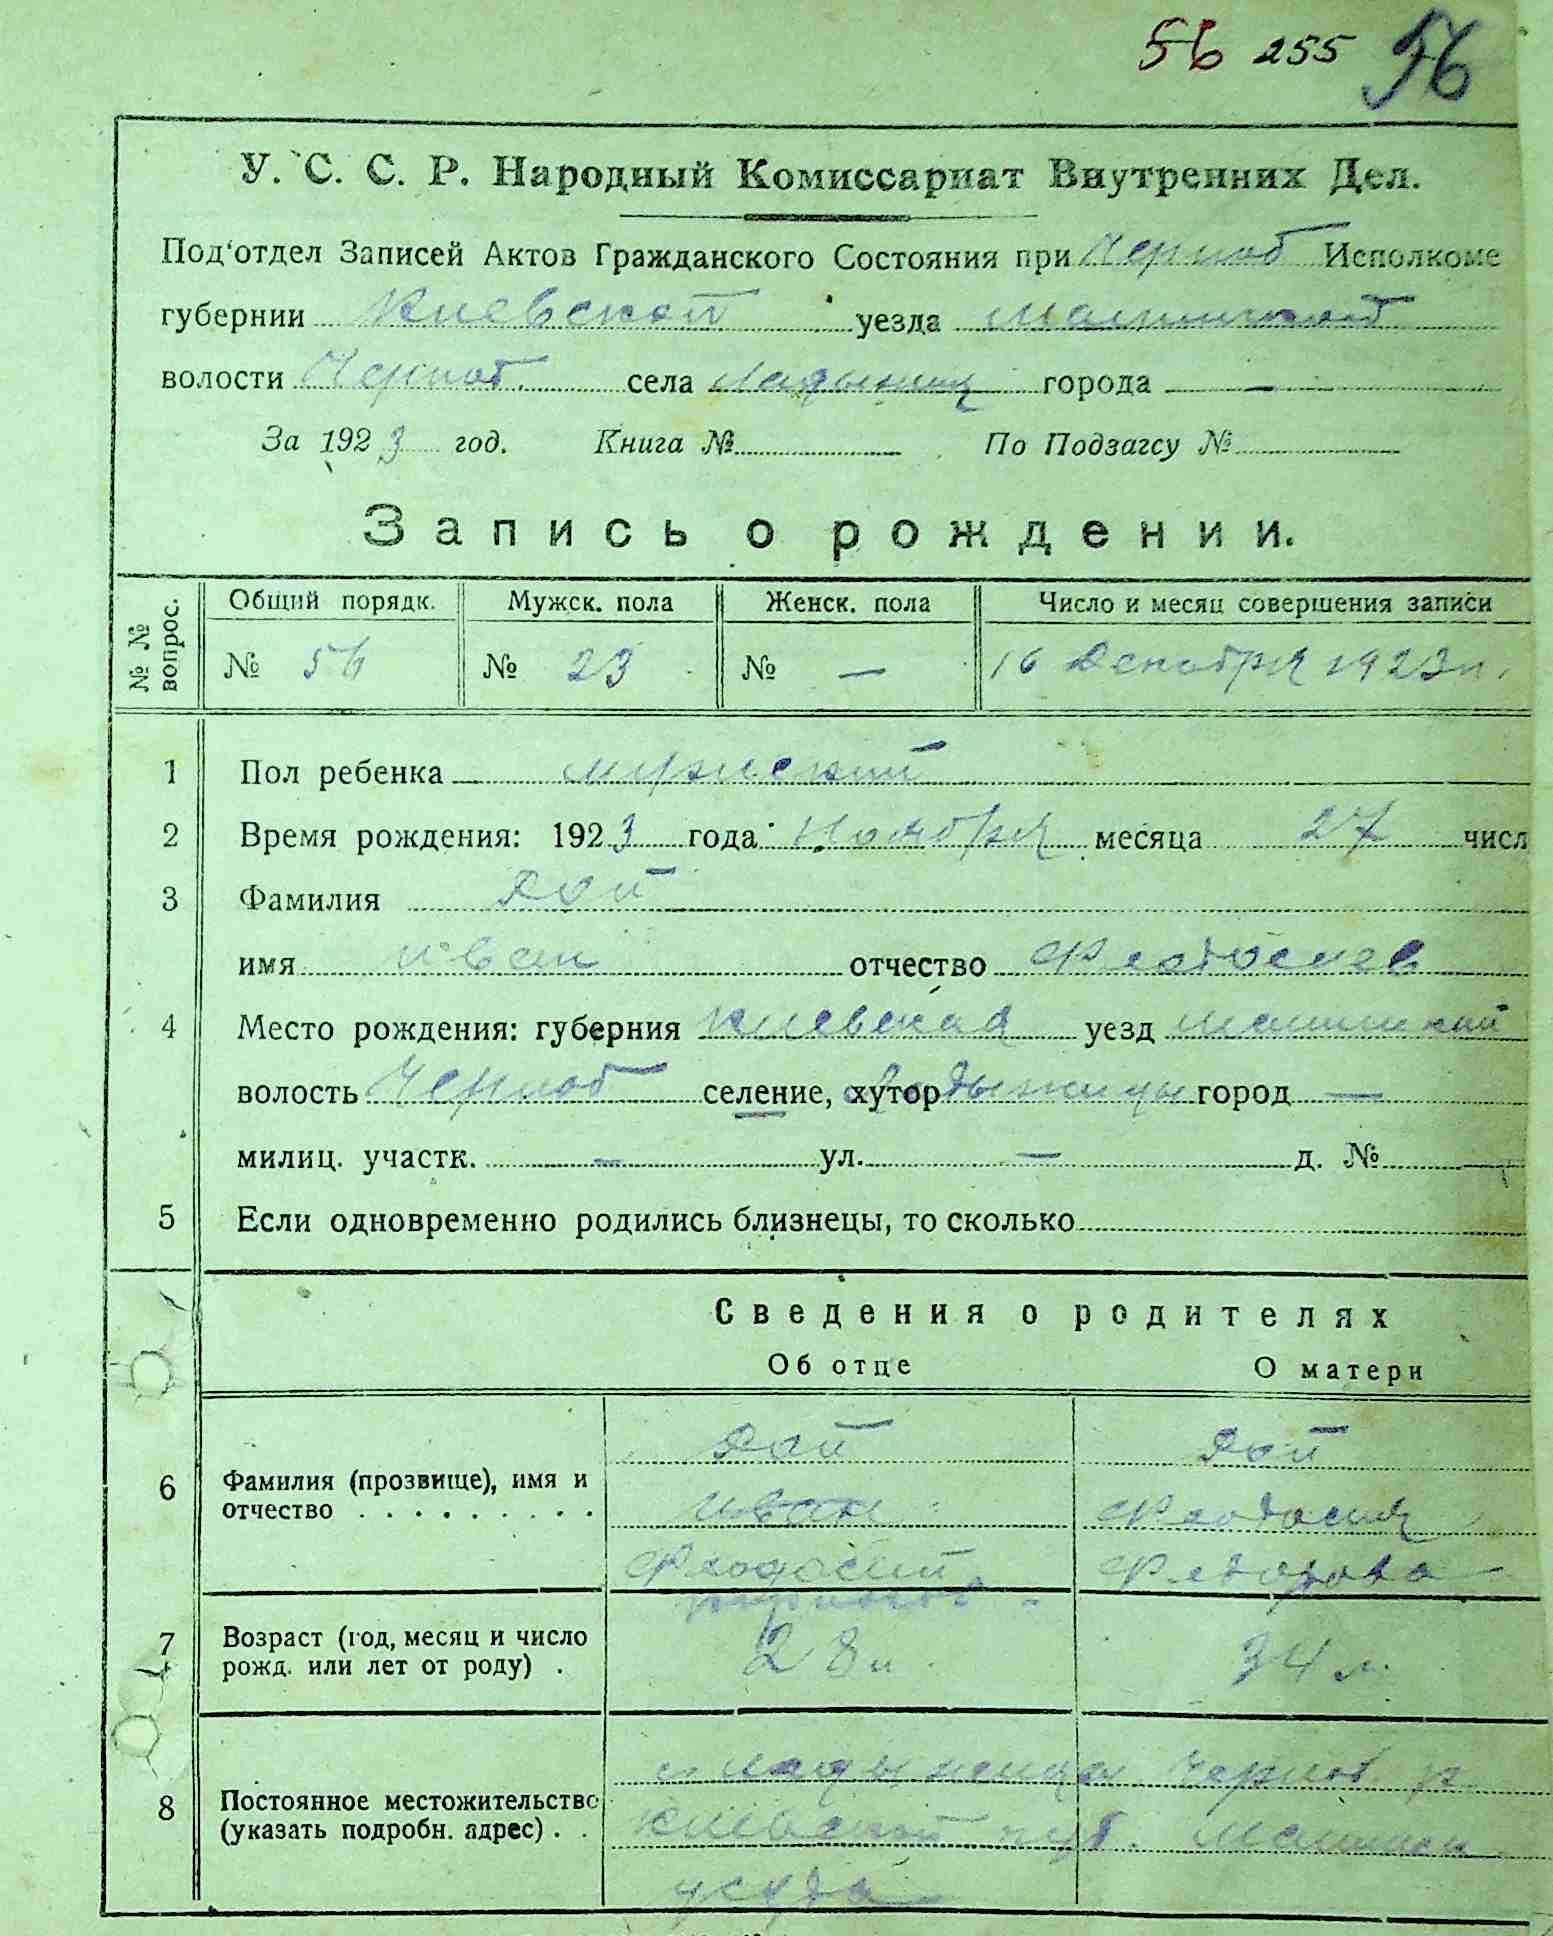 56 255 56
У. С. С. Р. Народный Комиссариат Внутренних Дел.
Под'отдел Записей Актов Гражданского Состояния при Черноб Исполкоме
губернии Киевской уезда
волости Черноб. села Ладыжич города —
За 1923 год. Книга № По Подзагсу №
Запись о рождении.
№ № вопрос. Общий порядк. Мужск. пола Женск. пола Число и месяц совершения записи
№ 56 № 23 № — 16 Декабря 1923 г.
1 Пол ребенка мужской
2 Время рождения: 1923 года Ноября месяца 27 числ
3 Фамилия Дой
имя Иван отчество Феодосиев
4 Место рождения: губерния Киевская уезд
волость Черноб селение, хутор Ладыжичи город —
милиц. участк. — ул. — д. № —
5 Если одновременно родились близнецы, то сколько
Сведения о родителях
Об отце О матери
6 Фамилия (прозвище), имя и отчество . . . . . . . . . .
Дой Дой
Иван Феодосия
Феодосий Федорова
7 Возраст (год, месяц и число рожд. или лет от роду) .
28 л. 34 л.
8 Постоянное местожительство (указать подробн. адрес) . .
Ладыжичи Черноб. р.
Киевской губ.
уезда